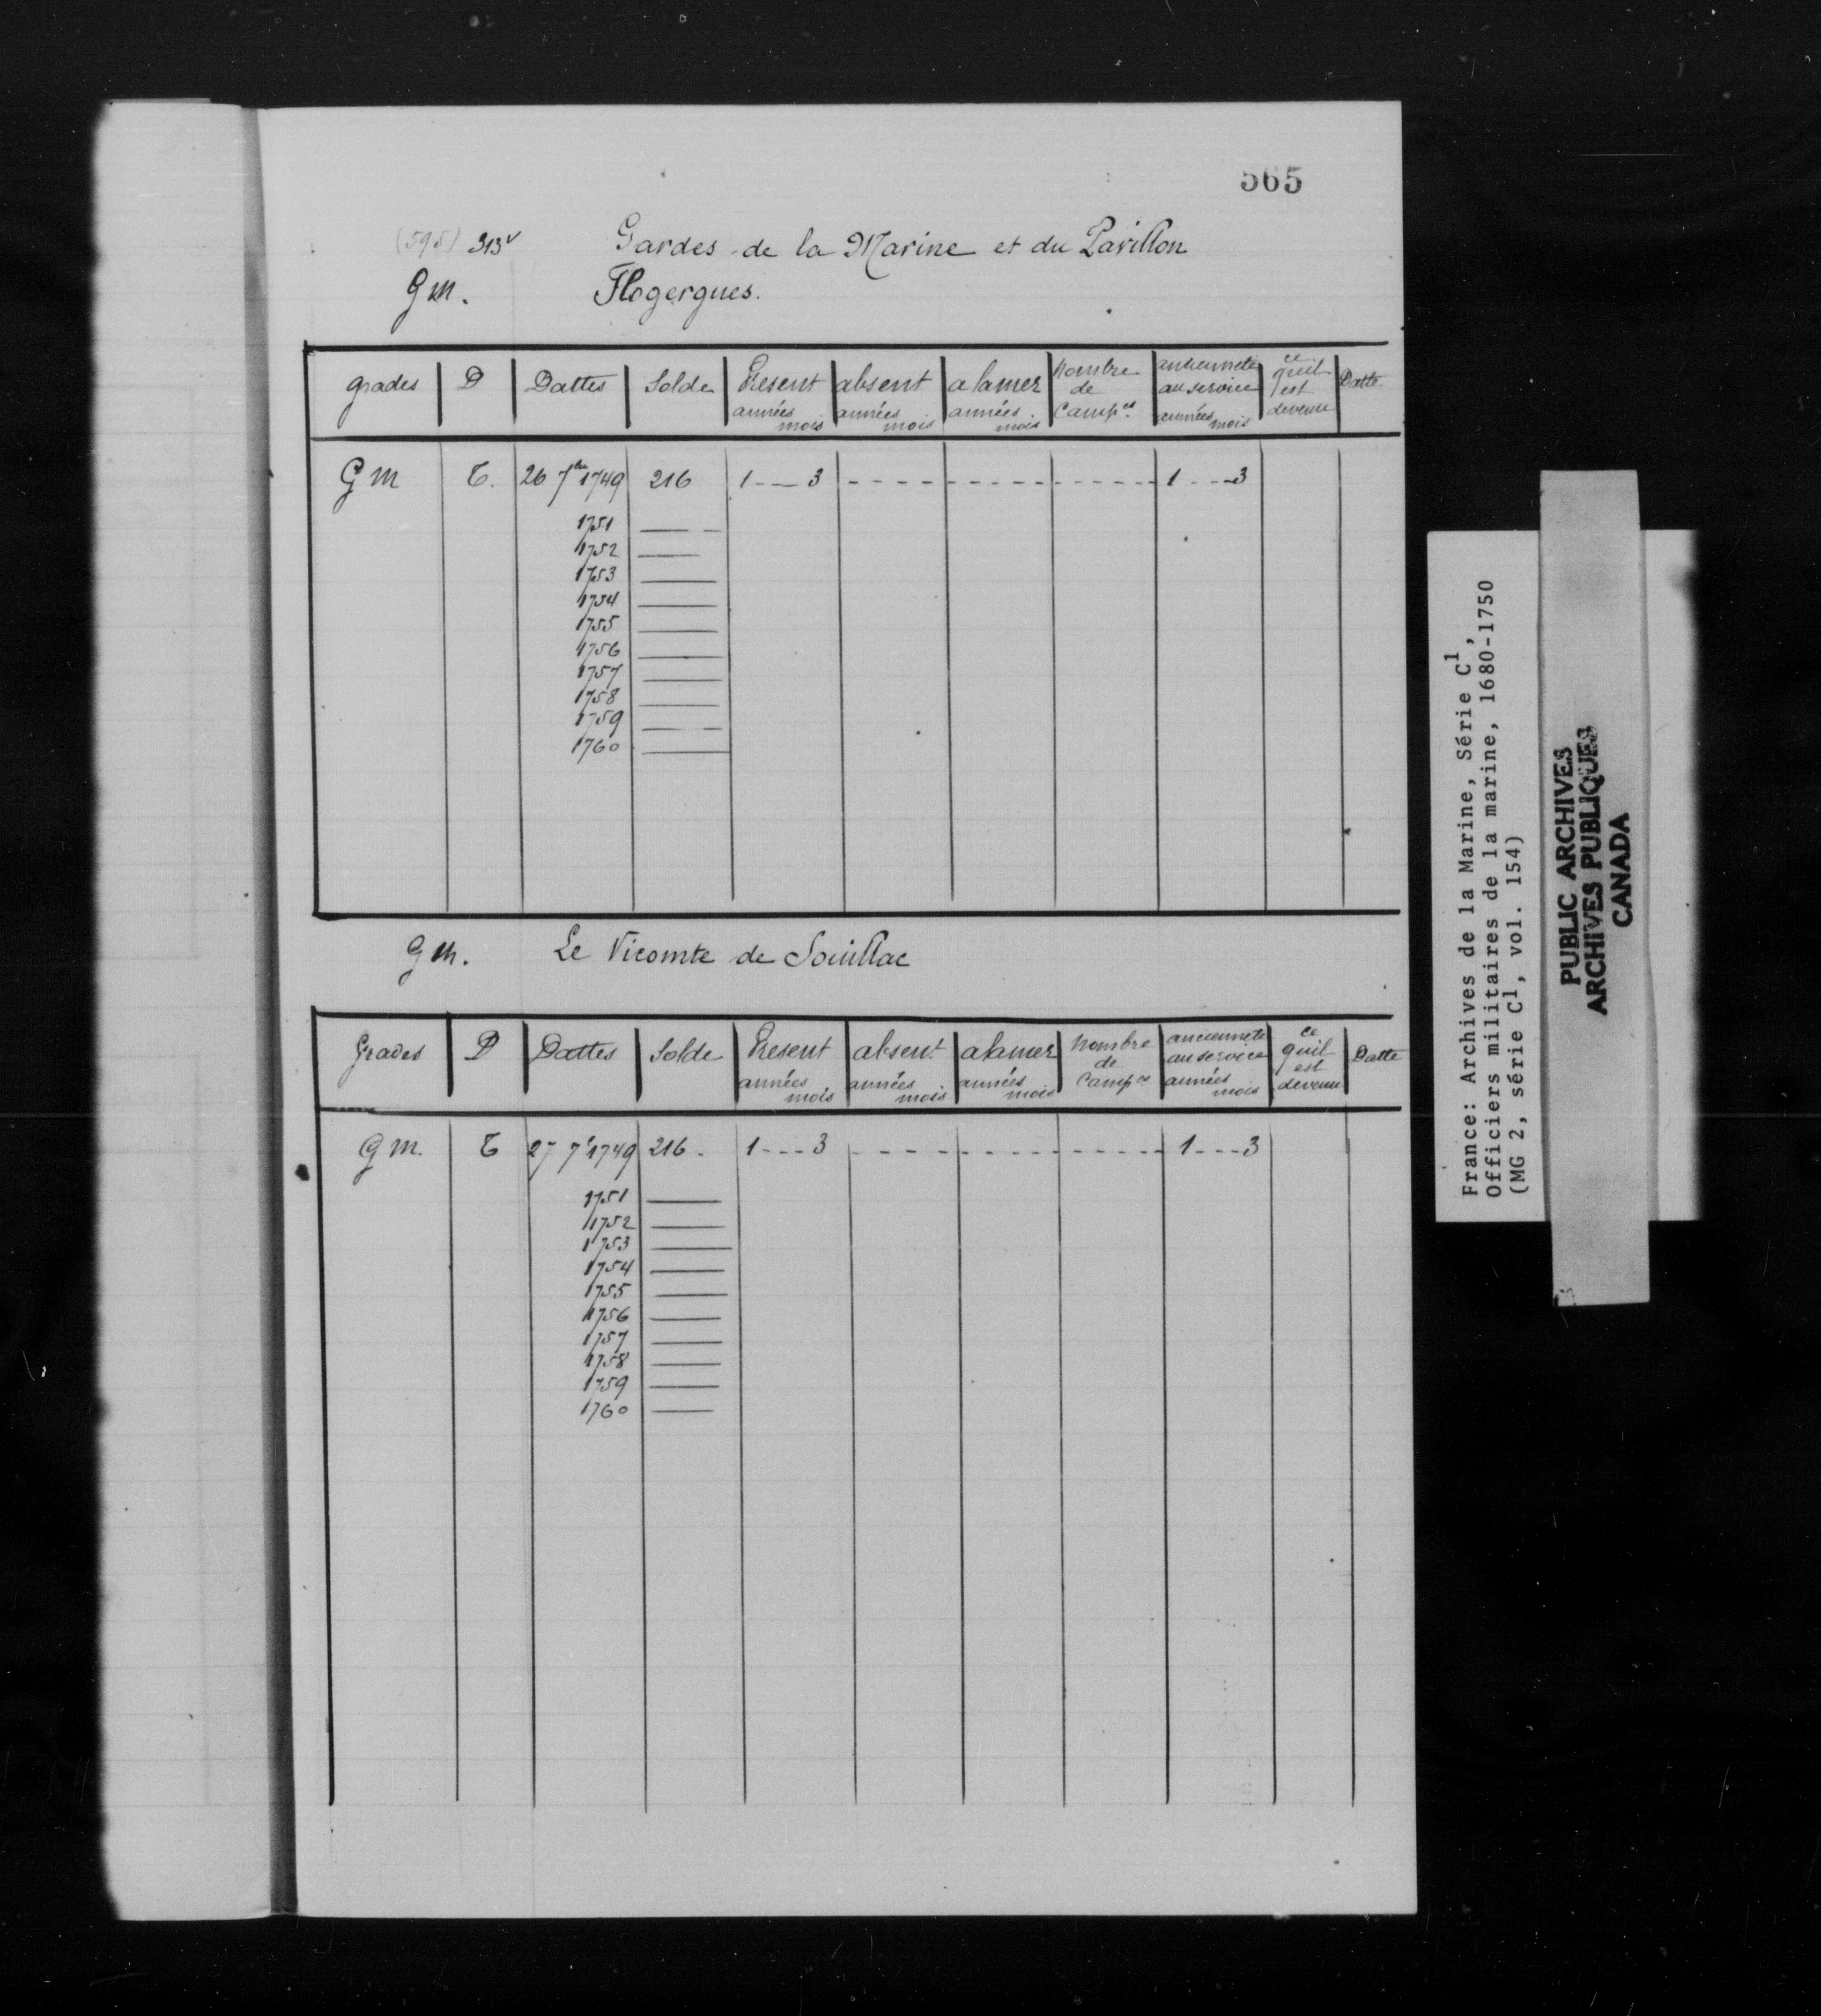 565
(595) 313v Gardes de la Marine et du Pavillon
G m. Flogergues.
grades D Dattes Solde Present absent a lamer nombre de Camp.es anciennete au service ce quil est devenu Datte
années mois années mois années mois années mois
G m T. 26 7bre 1749 216 1---3 - - - - - - - - - - - - 1---3
1751
1752
1753
1754
1755
1756
1757
1758
1759
1760
G m. Le Vicomte de Souillac
Grades D Dattes Solde Present absent alamer nombre de Camp es anciennete au service ce quil est devenu Datte
années mois années mois années mois années mois
G m. T 27 7e 1749 216. 1---3 - - - - - - - - - - - - 1---3
1751
1752
1753
1754
1755
1756
1757
1758
1759
1760
France: Archives de la Marine, Série C1,
Officiers militaires de la marine, 1680-1750
(MG 2, série C1, vol. 154)
PUBLIC ARCHIVES
ARCHIVES PUBLIQUES
CANADA